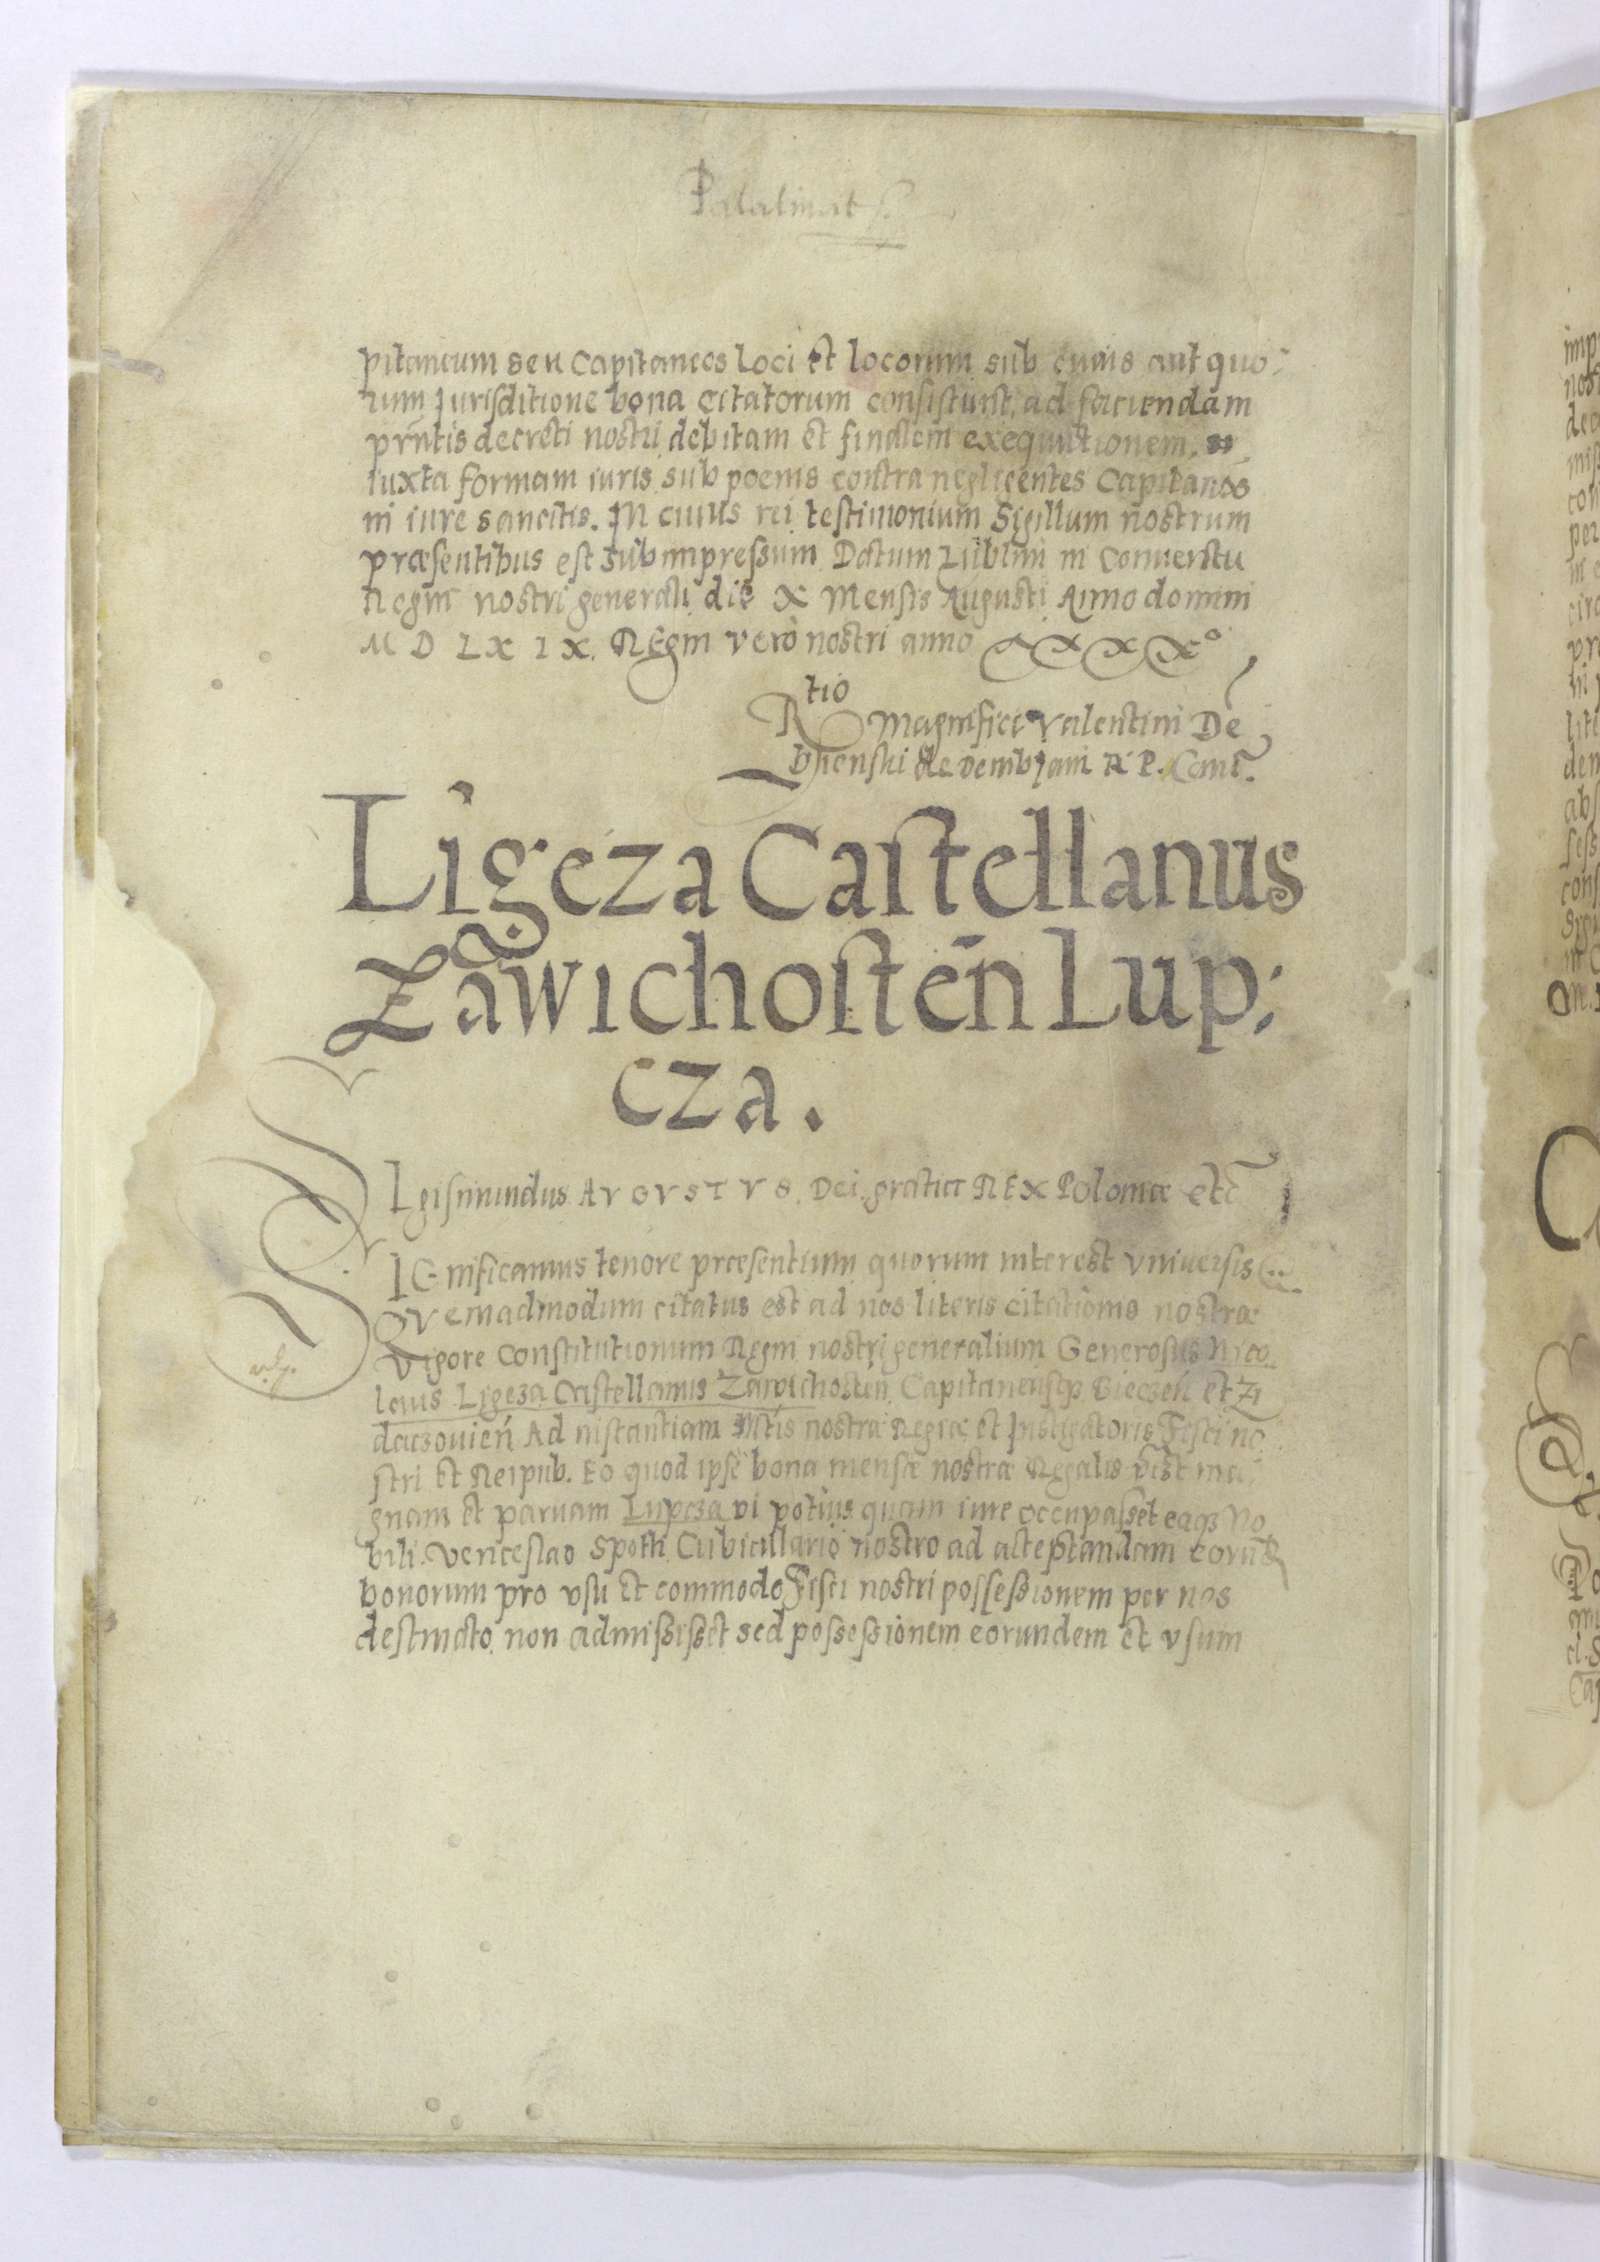 Palatinat
pitaneum seu Capitaneos loci et locorum sub cuius aut quo-
rum Jurisditione bona citatorum consistunt, ad faciendam
prntis decreti nostri debitam et finalem exequutionem,
iuxta formam iuris sub poenis contra negligentes Capitaneos
in iure sancitis. In cuius rei testimonium Sigillum nostrum
præsentibus est subimpressum Datum Lublini in Conuentu
Regni nostri generali die X Mensis Augusti Anno domini
M D L X I X. REgni vero nostri anno XXXX°
Rtio Magnifici Valentini De
bienski de Dembiani R P. Canc.
Ligeza Castellanus
Zawichosten Lup:
cza.
SIgismundus AVGVSTVS. Dei gratia REX Poloniæ etc
SIGnificamus tenore præsentium quorum interest vniuersis
QVemadmodum citatus est ad nos literis citationis nostræ
Vigore Constitutionum Regni nostri generalium Generosus Nico
laus Ligeza Castellanus Zawichosten Capitaneusq3 Bieczen et Zi
daczouien Ad instantiam Mtis nostræ Regiæ et Instigatoris Fisci no
stri Et Reipub. Eo quod ipse bona mensæ nostræ Regalis vist ma
gnam et paruam Lupcza vi potius quam iure occupasset eaq3 No
bili Venceslao Spoth Cubiculario nostro ad acceptandam eorund
bonorum pro vsu Et commodo Fisci nostri possessionem per nos
destinato, non admisisset sed possessionem eorundem et vsum